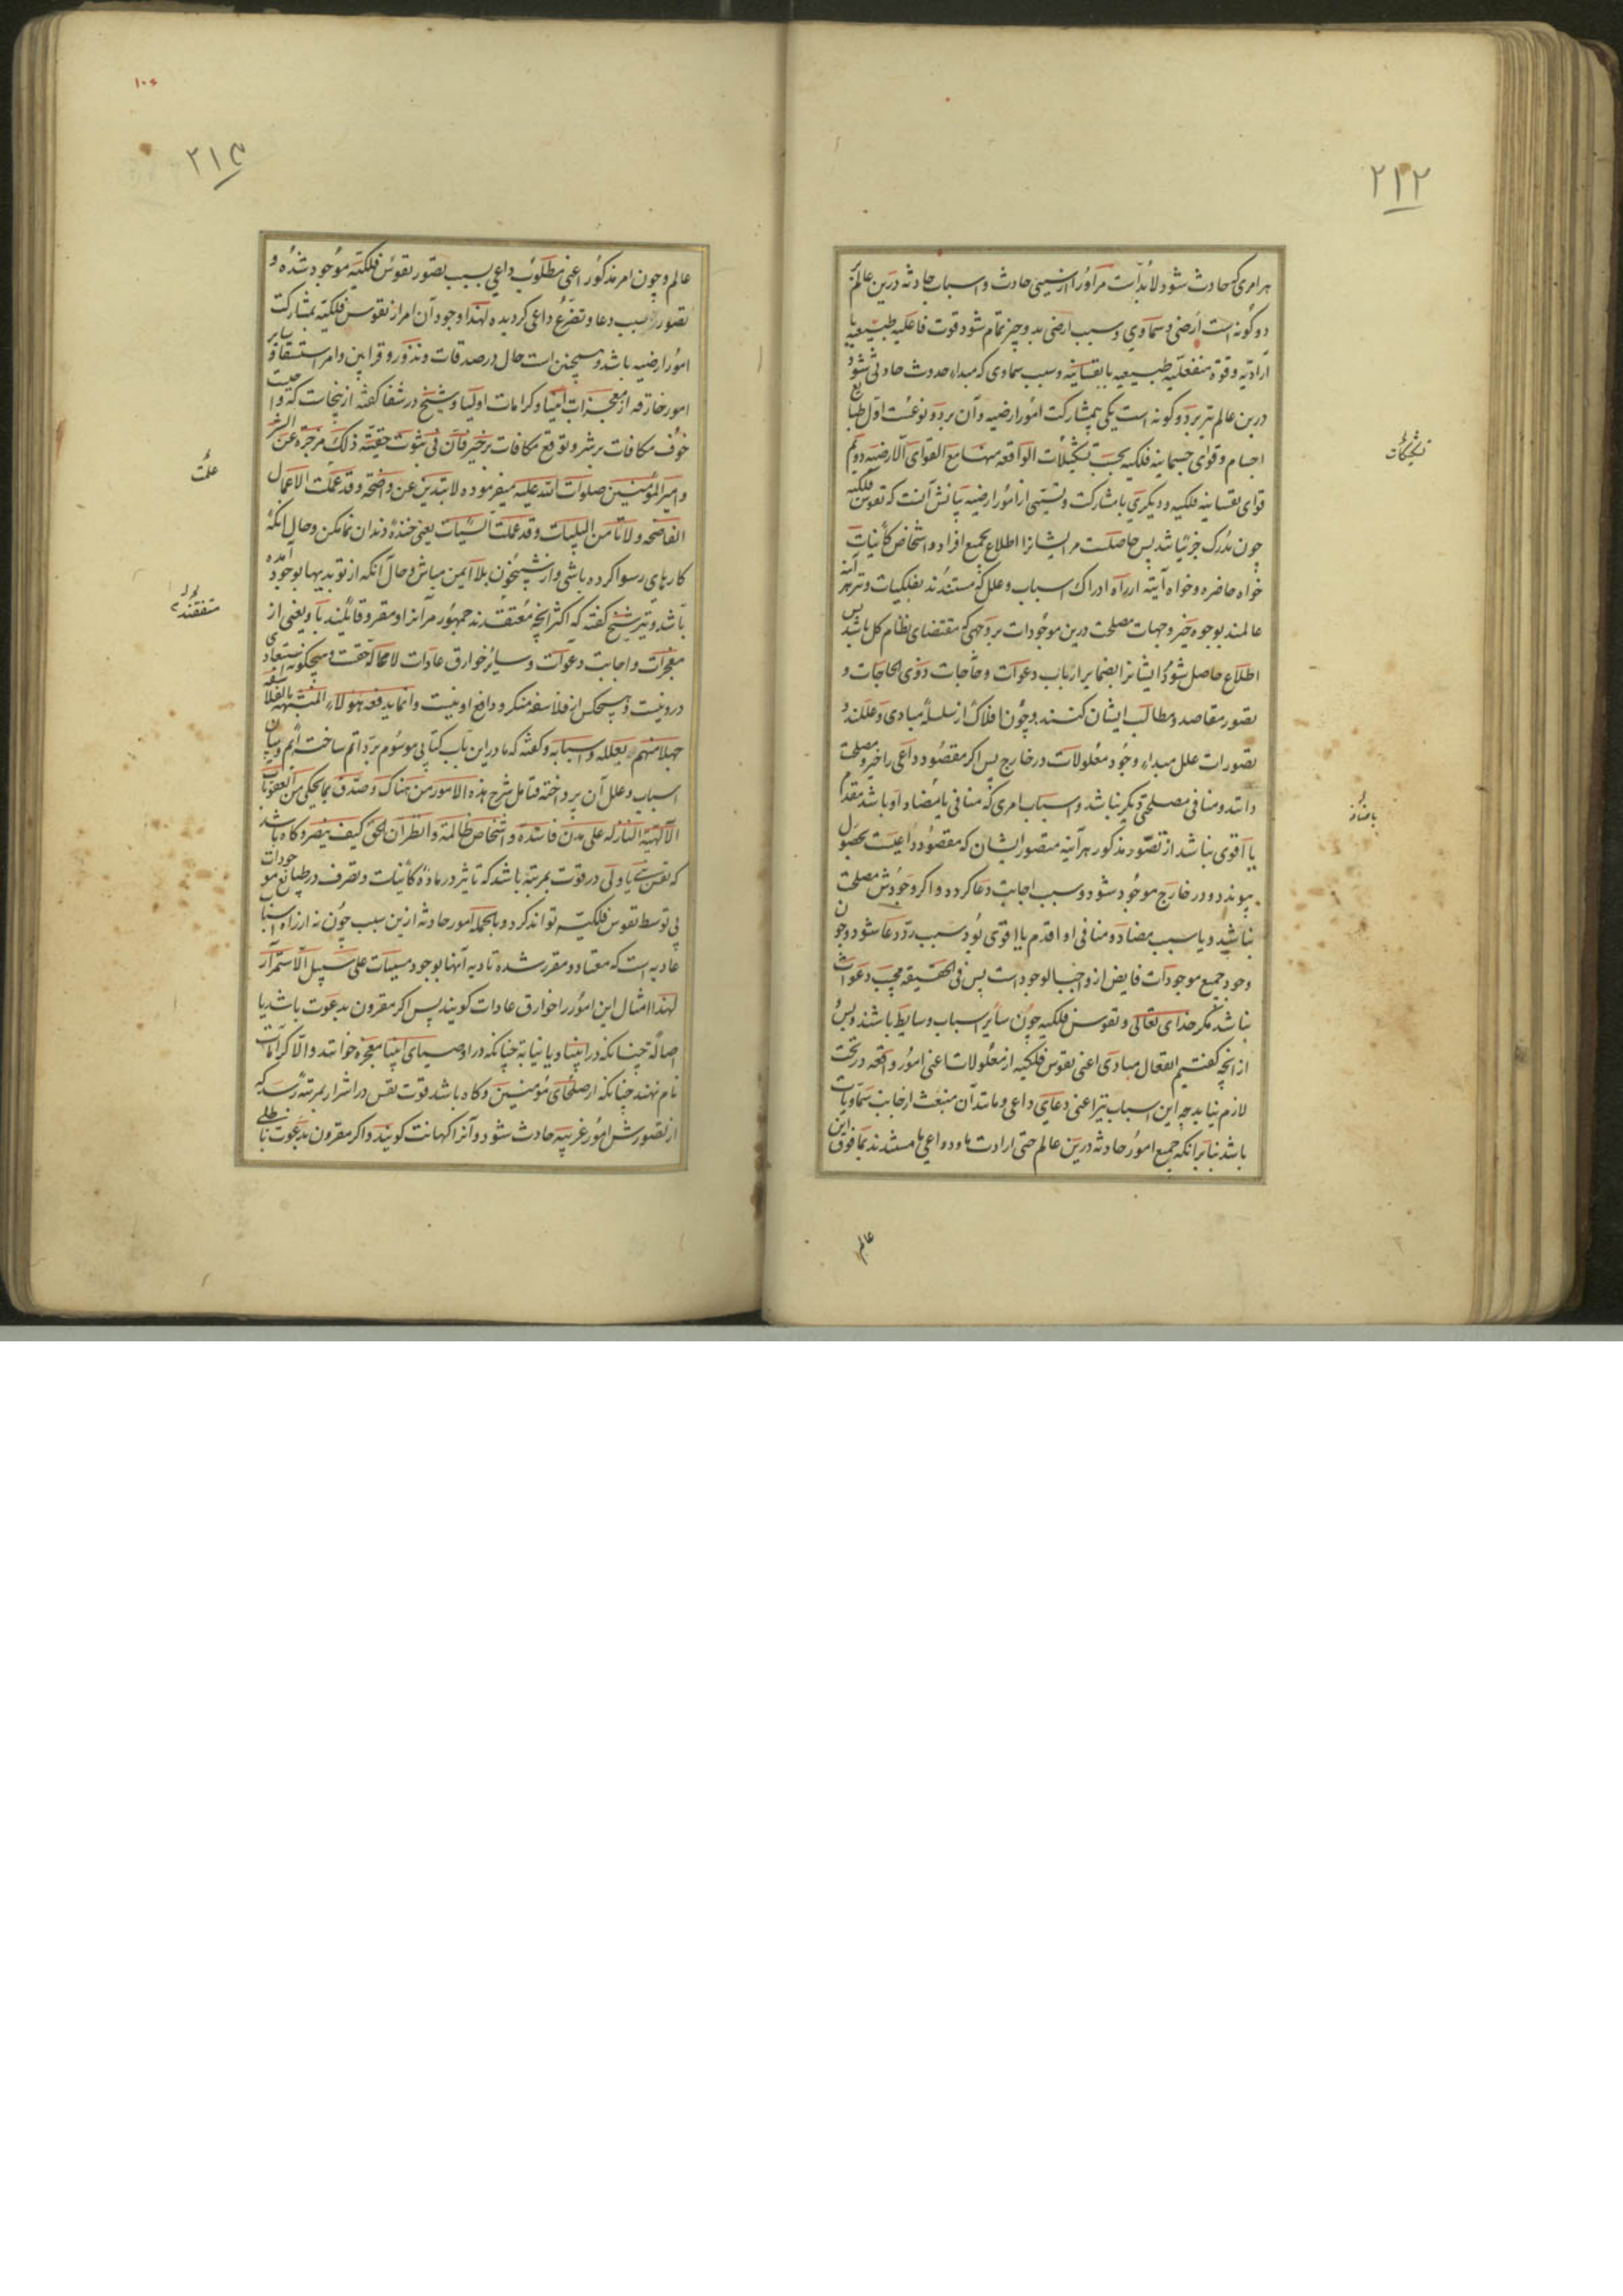 ۲۱۲
هر امری که حادث شود لابدست مر او را از سببی حادث و اسباب حادثه درین عالم
دو گونه است ارضی و سماوی و سبب ارضی بدو چیز تمام شود قوت فاعلیه طبیعیه یا
ارادیه و قوه منفعلیه طبیعیه یا نفسانیه و سبب سماوی که مبداء حدوث حادثی شود
درین عالم نیز بر دو گونه است یکی بمشارکت امور ارضیه و آن بر دو نوعست اول طبایع
اجسام و قوای جسمانیه فلکیه بحسب تشکیلات الواقعه منها مع القوای الارضیه دوم
قوای نفسانیه فلکیه و دیگری با مشارکت و نسبتی از امور ارضیه بیانش آنست که نفوس فلکیه
چون مدرک جزئیاتند پس حاصلست مر ایشانرا اطلاع بجمیع افراد و اشخاص کائنات
خواه حاضره و خواه آتیه از راه ادراک اسباب و علل که مستندند بفلکیات و نیز هر آینه
عالمند بوجوه خیر و جهات مصلحت درین موجودات بر وجهی که مقتضای نظام کل باشد پس
اطلاع حاصل شود ایشانرا بضمایر ارباب دعوات و حاجات ذوی الحاجات و
تصور مقاصد و مطالب ایشان کنند و چون افلاک از سلسله مبادی و عللند و
تصورات علل مبداء وجود معلولات در خارج پس اگر مقصود داعی را خیر و مصلحت
دانند و منافی مصلحتی دیگر نباشد و اسباب امری که منافی یا مضاد او باشد مقدم
یا اقوی نباشد از تصور مذکور هر آینه متصور ایشان که مقصود داعیست بحصول
پیوندد و در خارج موجود شود و سبب اجابت دعا گردد و اگر وجودش مصلحت
نباشد و یا سبب مضاد و منافی او اقدم یا اقوی بود سبب رد دعا شود و چون
وجود جمیع موجودات فایض از واجب الوجود است پس فی الحقیقه مجیب دعوات
نباشد مگر خدای تعالی و نفوس فلکیه چون سایر اسباب و سایط باشند و بس
از آنچه گفتیم انفعال مبادی اعنی نفوس فلکیه از معلولات اعنی امور واقعه در تحت
لازم نیاید چه این اسباب نیز اعنی دعای داعی و مانند آن منبعث از جانب سماویات
باشد بنابر انکه جمیع امور حادثه درین عالم حتی ارادت ها و دواعی ها مستندند بما فوق این
عالم
تشکلات
یا مضاد
۱۰۶
۲۱۳
عالم و چون امر مذکور اعنی مطلوب داعی بسبب تصور نفوس فلکیه موجود شده و
تصور سبب دعا و تضرع داعی گردیده لهذا وجود آن امر از نفوس فلکیه بمشارکت
امور ارضیه باشد و همچنین است حال در صدقات و نذور و قرابین و امر استسقا و سایر
امور خارقه از معجزات انبیا و کرامات اولیا و شیخ در شفا گفته ازینجاست که واجبست
خوف مکافات بر شر و توقع مکافات بر خیر فان فی ثبوت حقیته ذلک مزجره عن الشر
و امیر المؤمنین صلوات الله علیه میفرموده لا تبدین عن واضحه و قد عملت الاعمال
الفاضحه و لا تامن البلیات و قد عملت السیئات یعنی خنده دندان نما مکن و حال انکه
کارهای رسوا کرده باشی و از شبیخون بلا ایمن مباش و حال آنکه از تو بدیها بوجود آمده
باشد و نیز شیخ گفته که اکثر انچه معتقدند جمهور مر آنرا و مقر و قائلند باو یعنی از
معجزات و اجابت دعوات و سایر خوارق عادات لا محاله حقست و هیچگونه استبعادی
درو نیست و هیچکس از فلاسفه منکر و دافع او نیست و انما یدفعه هؤلاء المتشبهه بالفلاسفه
جهلا منهم بعلله و اسبابه و گفته که ما درین باب کتابی موسوم به بر و اثم ساخته ایم و بیان
اسباب و علل آن پرداخته فتامل شرح هذه الامور من هناک و صدق بما یحکی من العقوبات
الالهیه النازله علی مدن فاسده و اشخاص ظالمة و انظر ان الحق کیف ینصر و گاه باشد
که نفس نبی یا ولی در قوت بمرتبه باشد که تاثیر در ماده کائنات و تصرف در طبایع موجودات
بی توسط نفوس فلکیه تواند کرد و بالجمله امور حادثه ازین سبب چون نه از راه اسباب
عادیه است که معتاد و مقرر شده تادیه آنها بوجود مسببات علی سبیل الاستمرار
لهذا امثال این امور را خوارق عادات گویند پس اگر مقرون بدعوت باشد یا
اصالة چنانکه در انبیا و یا نیابة چنانکه در اوصیای انبیا معجزه خوانند و الا کرامات
نام نهند چنانکه از صلحای مؤمنین و گاه باشد قوت نفس در اشرار بمرتبه رسد که
از تصورش امور غریبه حادث شود و آنرا کهانت گویند و اگر مقرون بدعوت باطلی
علت
متفقند